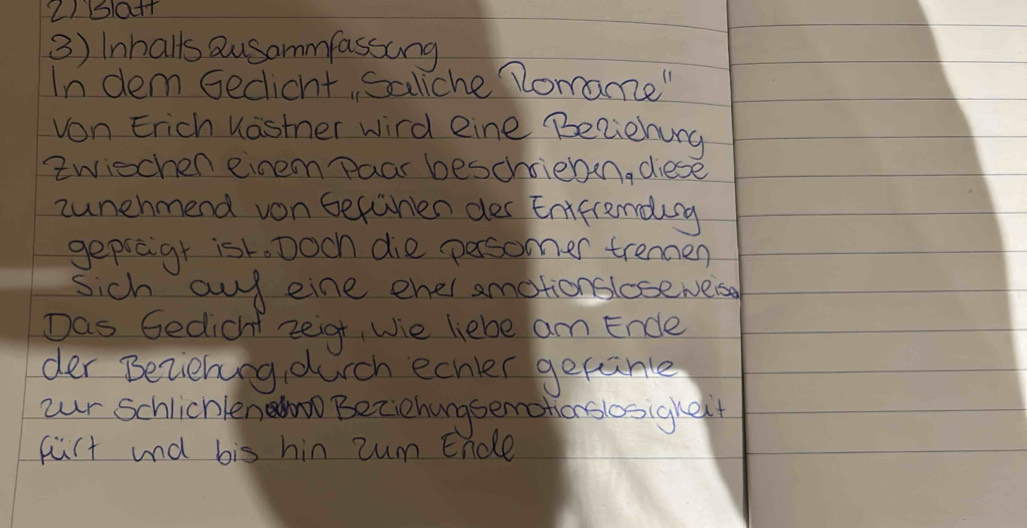 2) Blatt
3) Inhaltszusammfassung
In dem Gedicht „Saliche Romanze"
von Erich Kästner wird eine Beziehung
zwischen einem Paar beschrieben, diese
zunehmend von Gefühlen der Entfremdung
geprägt ist. Doch die personner trennen
sich auf eine eher emotionslose weise
Das Gedicht zeigt, wie liebe am Ende
der Beziehung, durch echter gefühle
zur Schlichten Beziehungsemotionslosigkeit
fürt und bis hin zum Ende